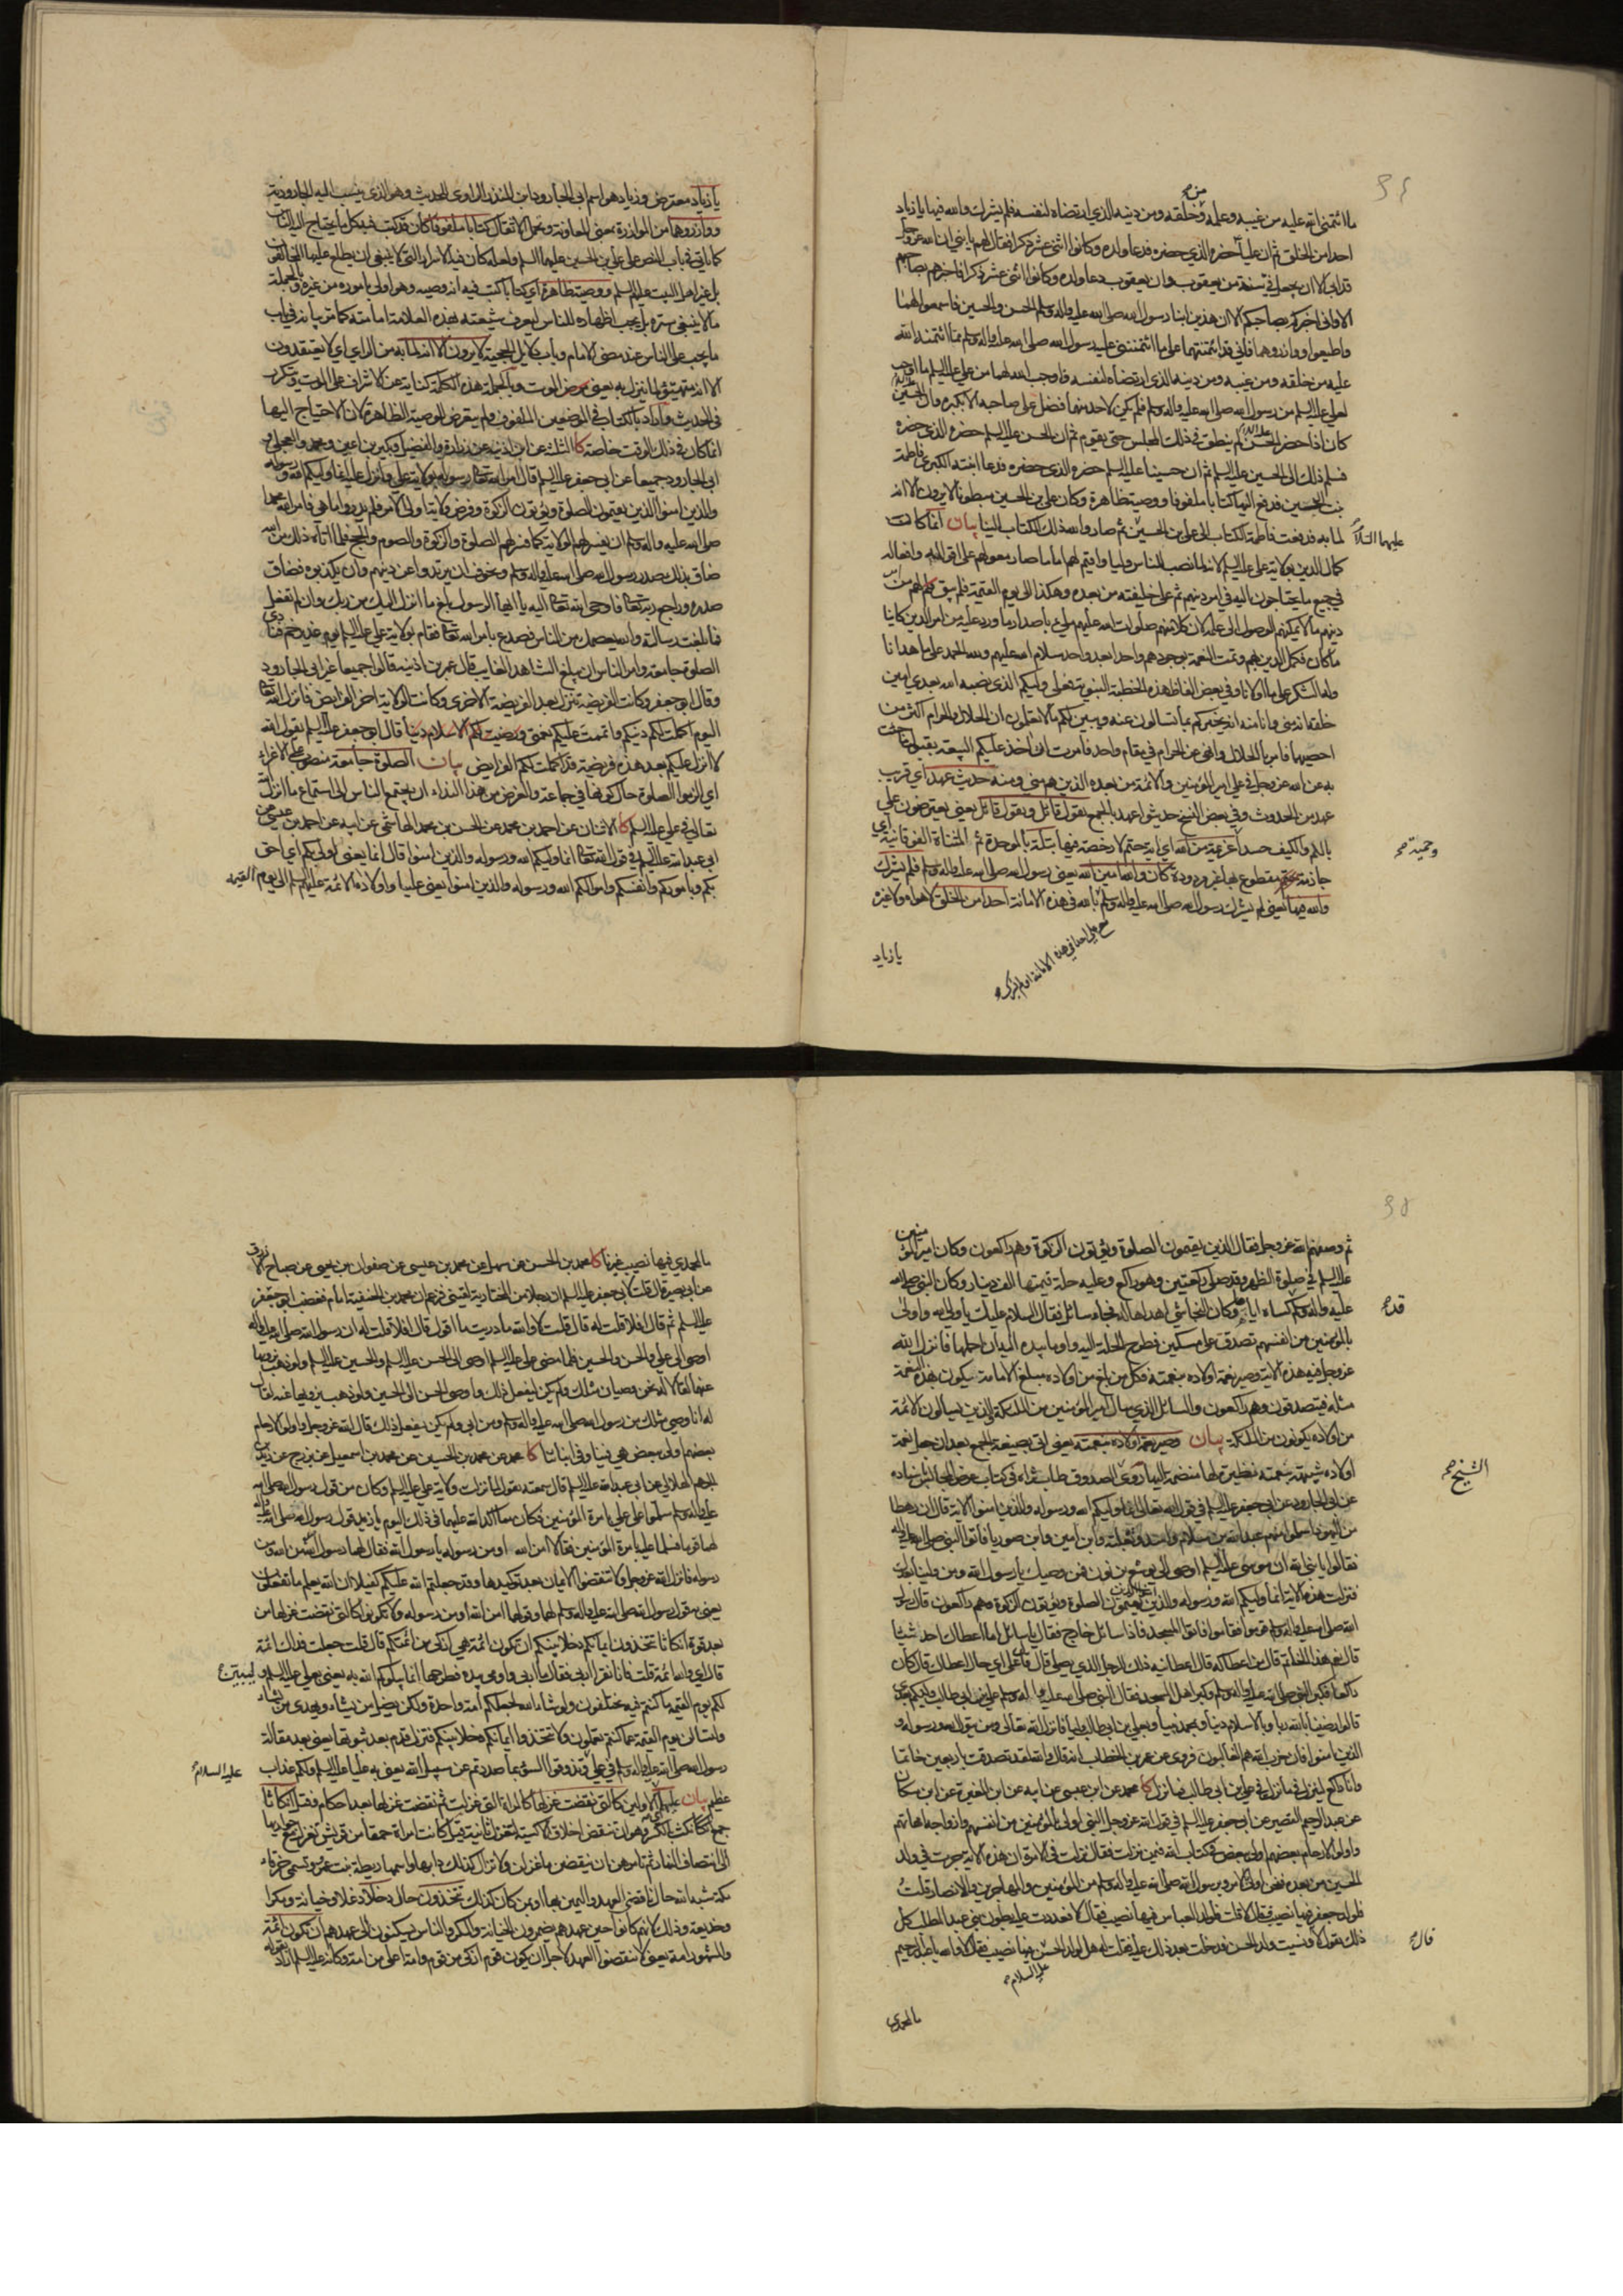 ما ائتمنه الله عليه من غيبه وعلمه وخلقه ومن دينه الذي ارتضاه لنفسه فلم يشرك والله فيها يا زياد
احدا من الخلق ثم ان عليا حضره الذي حضره فدعا ولده وكانوا اثنى عشر ذكرا فقال لهم يا بني ان الله عز وجل
قد ابى الا ان يجعل في سنة من يعقوب وان يعقوب دعا ولده وكانوا اثنى عشر ذكرا فاخبرهم بصاحبهم
الا واني اخبركم بصاحبكم الا ان هذين ابنا رسول الله صلى الله عليه واله وسلم الحسن والحسين فاسمعوا لهما
واطيعوا ووازروهما فاني قد ائتمنتهما على ما ائتمنني عليه رسول الله صلى الله عليه واله وسلم مما ائتمنه الله
عليه من خلقه ومن غيبه ومن دينه الذي ارتضاه لنفسه فاوجب الله لهما من علي عليه السلم ما اوجب
لعلي عليه السلم من رسول الله صلى الله عليه واله وسلم فلم يكن لاحد منهما فضل على صاحبه الا بكبره وان الحسين
كان اذا حضر الحسن لم ينطق في ذلك المجلس حتى يقوم ثم ان الحسن عليه السلم حضره الذي حضره
فسلم ذلك الى الحسين عليه السلم ثم ان حسينا عليه السلم حضره الذي حضره فدعا ابنته الكبرى فاطمة
بنت الحسين فدفع اليها كتابا ملفوفا ووصية ظاهرة وكان علي بن الحسين مبطونا لا يرون الا انه
لما به فدفعت فاطمة الكتاب الى علي بن الحسين ثم صار والله ذلك الكتاب الينا بيان انما كانت
عليهما السلام
كمال الدين بولاية علي عليه السلم لانه لما نصب للناس وليا واقيم لهم اماما صار معولهم على اقواله وافعاله
في جميع ما يحتاجون اليه في امر دينهم ثم على خليفته من بعده وهكذا الى يوم القيمة فلم يبق لهم من امر
ما كان فكمل الدين بهم وتمت النعمة بوجودهم واحدا بعد واحد سلام الله عليهم ولله الحمد على ما هدانا
وله الشكر على ما اولانا وفي بعض الفاظ هذه الخطبة النبوية
احصيهما فامر بالحلال وانهى عن الحرام في مقام واحد فامرت ان اخذ عليكم البيعة بقبول ما جئت
به عن الله عز وجل في علي امير المؤمنين والائمة من بعده الذين هم مني ومنه حديث عهد اي قريب
عهد من الحدوث وفي بعض النسخ حديثوا عهد بالجمع يقول قائل ويقول قائل يعني يعترضون علي
وحمية صح
والله فيها يعني لم يشرك رسول الله صلى الله عليه واله وسلم بالله في هذه الامانة احدا من الخلق
يا زياد
يا زياد معترض وزياد هو اسم ابي الجارود ابن المنذر الراوي للحديث وهو الذي ينسب اليه الجارودية
ووازروهما من الموازرة بمعنى المعاونة وتحمل الاثقال كتابا ملفوفا كان قد كتب فيه كل ما يحتاج اليه الناس
كما ياتي في باب النص على علي بن الحسين عليهما السلم ولعله كان فيه الاسرار التي لا ينبغي ان يطلع عليها المخالفون
بل غير اهل البيت عليهم السلم ووصية ظاهرة اي كتابا كتب فيه انه وصيه وهو اولى باموره من غيره وبالجملة
ما لا ينبغي ستره بل يجب اظهاره للناس ليعرف شيعته بهذه العلامة امامته كما مر بيانه في باب
ما يجب على الناس عند مضي الامام وباب دلايل الحجية لا يرون الا انه لما به من الراي اي لا يعتقدون
الا انه متهيئ لما ينزل به يعني مرض الموت وبالجملة هذه الكلمة كناية عن الاشراف على الموت وتكرر
في الحديث واراد بالكتاب في الموضعين الملفوف ولم يتعرض الوصية الظاهرة لان الاحتياج اليها
انما كان في ذلك الوقت خاصة كا الثلثة عن ابن اذينة عن زرارة والفضيل وبكير بن اعين ومحمد والعجلي و
ابي الجارود جميعا عن ابي جعفر عليه السلم قال امر الله تعالى رسوله بولاية علي وانزل عليه انما وليكم الله ورسوله
والذين امنوا الذين يقيمون الصلوة ويؤتون الزكوة وفرض ولاية اولي الامر فلم يدروا ما هي فامر الله محمدا
صلى الله عليه واله وسلم ان يفسر لهم الولاية كما فسر لهم الصلوة والزكوة والصوم والحج فلما اتاه ذلك من الله
ضاق بذلك صدر رسول الله صلى الله عليه واله وسلم وتخوف ان يرتدوا عن دينهم وان يكذبوه فضاق
صدره وراجع ربه تعالى فاوحى الله تعالى اليه يا ايها الرسول بلغ ما انزل اليك من ربك وان لم تفعل
فما بلغت رسالته والله يعصمك من الناس فصدع بامر الله تعالى فقام بولاية علي عليه السلم يوم غدير خم فنادى
الصلوة جامعة وامر الناس ان يبلغ الشاهد الغايب قال عمر بن اذينة قالوا جميعا غير ابي الجارود
وقال ابو جعفر وكانت الفريضة تنزل بعد الفريضة الاخرى وكانت الولاية اخر الفرايض فانزل الله تعالى
اليوم اكملت لكم دينكم واتممت عليكم نعمتي ورضيت لكم الاسلام دينا قال ابو جعفر عليه السلم يقول الله
لا انزل عليكم بعد هذه فريضة قد اكملت لكم الفرايض بيان الصلوة جامعة منصوب على الاغراء
اي الزموا الصلوة حال كونها في جماعة والغرض من هذا النداء ان يجتمع الناس الى استماع ما انزل الله
تعالى في علي عليه السلم كا الاثنان عن احمد بن محمد عن الحسن بن محمد الهاشمي عن ابيه عن احمد بن عيسى عن
ابي عبد الله عليه السلم في قول الله تعالى انما وليكم الله ورسوله والذين امنوا قال انما يعني اولى بكم اي احق
بكم وباموركم وانفسكم واموالكم الله ورسوله والذين امنوا يعني عليا واولاده الائمة عليهم السلم الى يوم القيمة
ثم وصفهم الله عز وجل فقال الذين يقيمون الصلوة ويؤتون الزكوة وهم راكعون وكان امير المؤمنين
عليه السلم في صلوة الظهر وقد صلى ركعتين وهو راكع وعليه حلة قيمتها الف دينار وكان النبي صلى الله
عليه واله وسلم كساه اياها وكان النجاشي اهداها له فجاء سائل فقال السلام عليك يا ولي الله واولى
بالمؤمنين من انفسهم تصدق على مسكين فطرح الحلة اليه واومأ بيده اليه ان احملها فانزل الله
عز وجل فيه هذه الاية وصير نعمة اولاده بنعمته فكل من بلغ من اولاده مبلغ الامامة يكون بهذه النعمة
مثله فيتصدقون وهم راكعون والسائل الذي سال امير المؤمنين من الملئكة والذين يسالون الائمة
من اولاده يكونون من الملئكة بيان وصير نعمة اولاده بنعمته يعني اتى بصيغة الجمع بعد ان جعل نعمة
الشيخ صح
عن ابي الجارود عن ابي جعفر عليه السلم في قول الله تعالى انما وليكم الله ورسوله والذين امنوا الاية قال ان رهطا
من اليهود اسلموا منهم عبد الله بن سلام واسد وثعلبة وابن امين وابن صوريا فاتوا النبي صلى الله عليه واله
فقالوا يا نبي الله ان موسى عليه السلم اوصى الى يوشع بن نون فمن وصيك يا رسول الله ومن ولينا بعدك
فنزلت هذه الاية انما وليكم الله ورسوله والذين امنوا الذين يقيمون الصلوة ويؤتون الزكوة وهم راكعون قال رسول
الله صلى الله عليه واله وسلم قوموا فقاموا فاتوا المسجد فاذا سائل خارج فقال يا سائل اما اعطاك احد شيئا
قال نعم هذا الخاتم قال من اعطاكه قال اعطانيه ذلك الرجل الذي يصلي قال على اي حال اعطاك قال كان
راكعا فكبر النبي صلى الله عليه واله وسلم وكبر اهل المسجد فقال النبي صلى الله عليه واله وسلم علي بن ابي طالب وليكم بعدي
قالوا رضينا بالله ربا وبالاسلام دينا وبمحمد نبيا وبعلي بن ابي طالب وليا فانزل الله تعالى ومن يتول الله ورسوله و
الذين امنوا فان حزب الله هم الغالبون فروي عن عمر بن الخطاب انه قال والله لقد تصدقت باربعين خاتما
وانا راكع لينزل في ما نزل في علي بن ابي طالب فما نزل كا محمد عن ابن عيسى عن ابيه عن ابن المغيرة عن ابن مسكان
عن عبد الرحيم القصير عن ابي جعفر عليه السلم في قول الله عز وجل النبي اولى بالمؤمنين من انفسهم وازواجه امهاتهم
واولوا الارحام بعضهم اولى ببعض في كتاب الله فيمن نزلت فقال نزلت في الامرة ان هذه الاية جرت في ولد
الحسين من بعده فنحن اولى بالامر وبرسول الله صلى الله عليه واله وسلم من المؤمنين والمهاجرين والانصار قلت
فلولد جعفر فيها نصيب فقال لا قلت فلولد العباس فيها نصيب فقال لا فعددت عليه بطون بني عبد المطلب كل
ذلك يقول لا ونسيت ولد الحسن فدخلت بعد ذلك عليه فقلت له هل لولد الحسن فيها نصيب فقال لا والله يا عبد الرحيم
قال صح
عليه السلام
ما لمحمدي
ما لمحمدي فيها نصيب غيرنا كا محمد بن الحسن عن سهل عن محمد بن عيسى عن صفوان بن يحيى عن صباح الازرق
عن ابي بصير قال قلت لابي جعفر عليه السلم ان رجلا من المختارية لقيني فزعم ان محمد بن الحنفية امام فغضب ابو جعفر
عليه السلم ثم قال افلا قلت له قال قلت لا والله ما دريت ما اقول قال افلا قلت له ان رسول الله صلى الله عليه واله
اوصى الى علي والحسن والحسين فلما مضى علي عليه السلم اوصى الى الحسن عليه السلم والحسين عليه السلم ولو ذهب يزويها
عنهما لقالا له نحن وصيان مثلك ولم يكن ليفعل ذلك واوصى الحسن الى الحسين ولو ذهب يزويها عنه لقال
له انا وصي مثلك من رسول الله صلى الله عليه واله وسلم ومن ابي ولم يكن ليفعل ذلك قال الله عز وجل واولوا الارحام
بعضهم اولى ببعض هي فينا وفي ابنائنا كا محمد عن محمد بن الحسين عن محمد بن اسمعيل عن بزرج عن زيد بن
الجهم الهلالي عن ابي عبد الله عليه السلم قال سمعته يقول لما نزلت ولاية علي عليه السلم وكان من قول رسول الله صلى الله
عليه واله وسلم سلموا على علي بامرة المؤمنين فكان مما اكد الله عليهما في ذلك اليوم يا زيد قول رسول الله صلى الله عليه واله
لهما قوما فسلما عليه بامرة المؤمنين فقالا امن الله او من رسوله يا رسول الله فقال لهما رسول الله من الله ومن
رسوله فانزل الله عز وجل ولا تنقضوا الايمان بعد توكيدها وقد جعلتم الله عليكم كفيلا ان الله يعلم ما تفعلون
يعني به قول رسول الله صلى الله عليه واله وسلم لهما وقولهما امن الله او من رسوله ولا تكونوا كالتي نقضت غزلها من
بعد قوة انكاثا تتخذون ايمانكم دخلا بينكم ان تكون ائمة هي ازكى من ائمتكم قال قلت جعلت فداك ائمة
قال اي والله ائمة قلت فانا نقرأ اربى فقال ما اربى واومى بيده فطرحها انما يبلوكم الله به يعني بعلي عليه السلم وليبينن
لكم يوم القيمة ما كنتم فيه تختلفون ولو شاء الله لجعلكم امة واحدة ولكن يضل من يشاء ويهدي من يشاء
ولتسالن يوم القيمة عما كنتم تعملون ولا تتخذوا ايمانكم دخلا بينكم فتزل قدم بعد ثبوتها يعني بعد مقالة
رسول الله صلى الله عليه واله وسلم في علي وتذوقوا السوء بما صددتم عن سبيل الله يعني به عليا عليه السلم ولكم عذاب
عليه السلام
الى انتصاف النهار ثم تامرهن ان ينقضن ما غزلن ولا تزال كذلك دابها واسمها ريطة بنت عمرو وتسمى خرقاء
مكة شبه الله حال ناقضي العهد واليمين بها او بمن كان كذلك تتخذون حال دخلا دغلا وخيانة ومكرا
وخديعة وذلك لانهم كانوا حين عهدهم يضمرون الخيانة والمكر والناس يسكنون الى عهدهم ان تكون ائمة